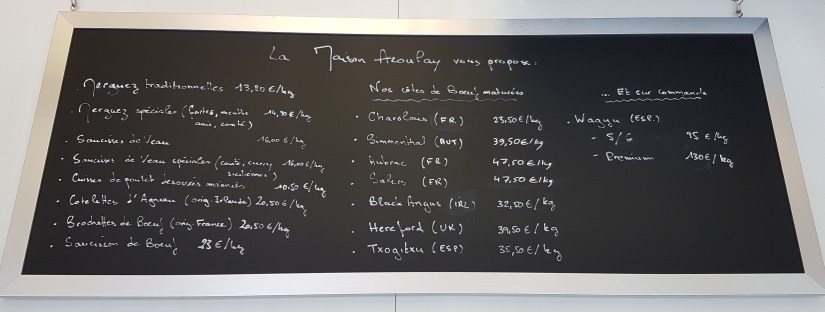 La Maison Azoulay vous propose :
. Merguez traditionnelles 13,80 €/kg
. Merguez spéciales (fortes, menthe 14,90 €/kg
anis, comté)
. Saucisses de Veau 16,00 €/kg
. Saucisses de Veau spéciales (comté, curry 16,00 €/kg
siciliennes)
. Cuisses de poulet désossées marinées 10,50 €/kg
. Cotelettes d'Agneau (orig. Irlande) 20,50 €/kg
. Brochettes de Boeuf (orig. France) 20,50 €/kg
. Saucisson de Boeuf 23 €/kg
Nos côtes de Boeuf maturées
. Charolais (FR) 23,50 €/kg
. Simmenthal (AUT) 39,50 €/kg
. Aubrac (FR) 47,50 €/kg
. Salers (FR) 47,50 €/kg
. Black Angus (IRL) 32,50 €/kg
. Hereford (UK) 39,50 €/kg
. Txogitxu (ESP) 35,50 €/kg
... Et sur commande
. Wagyu (ESP.)
- 5/6 95 €/kg
- Premium 130 €/kg